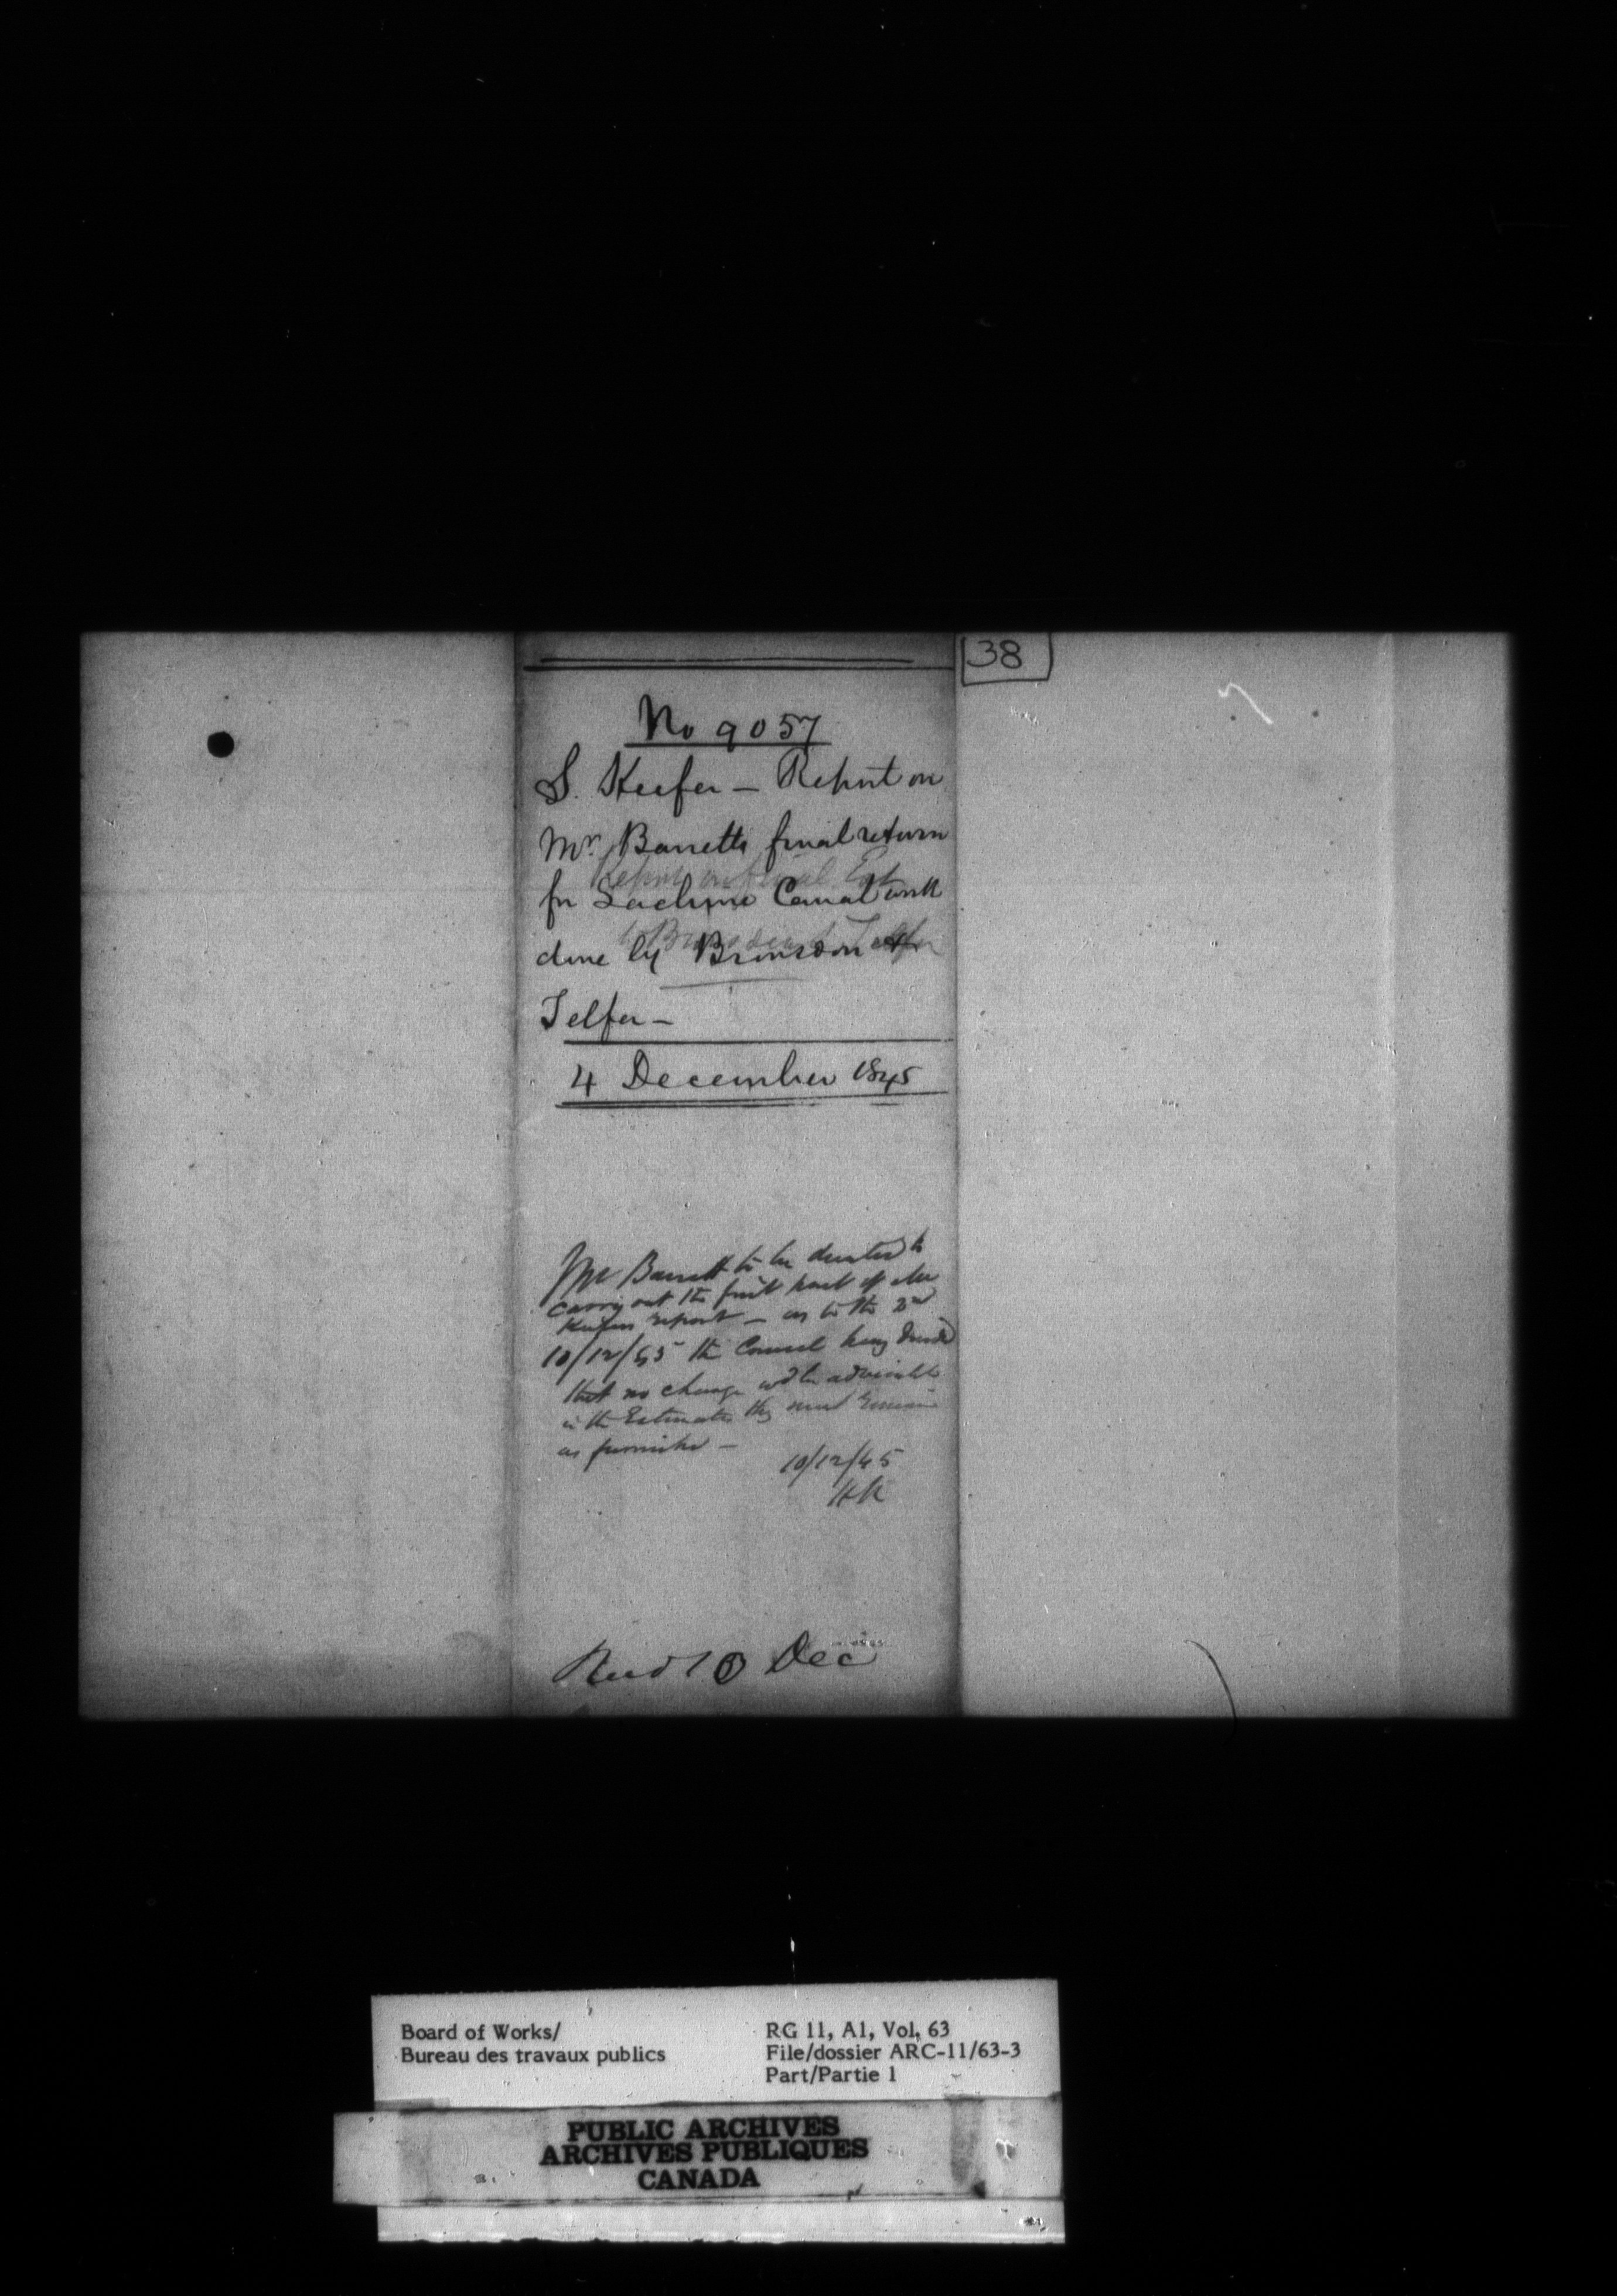 38
No 9057
S. Keefer — Report on
Mr. Barretts final return
for Lachine Canal work
done by Bronsdon &
Telfer —
4 December 1845
Mr Barrett to be directed to
carry out the first part of Mr
Keefers report — as to the 2nd
10/12/45 the Council having decided
that no change wd be advisable
in the Estimates they must remain
as furnished —
10/12/45
HK
Recd 10 Dec
Board of Works/
Bureau des travaux publics
RG 11, A1, Vol. 63
File/dossier ARC-11/63-3
Part/Partie 1
PUBLIC ARCHIVES
ARCHIVES PUBLIQUES
CANADA